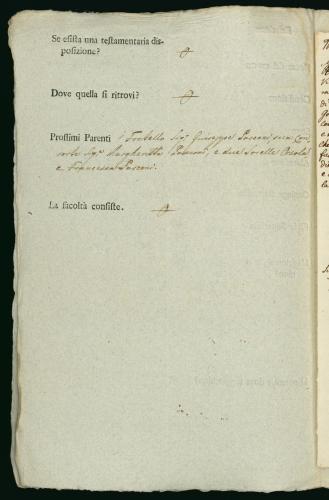 Se esista una testamentaria dis-
posizione?
Dove quella si ritrovi?
Prossimi Parenti i Fratello Sigr Giuseppe sua Con-
sorte Sigra Margherita e due Sorelle Orsola
e Francesca
La facoltà consiste.